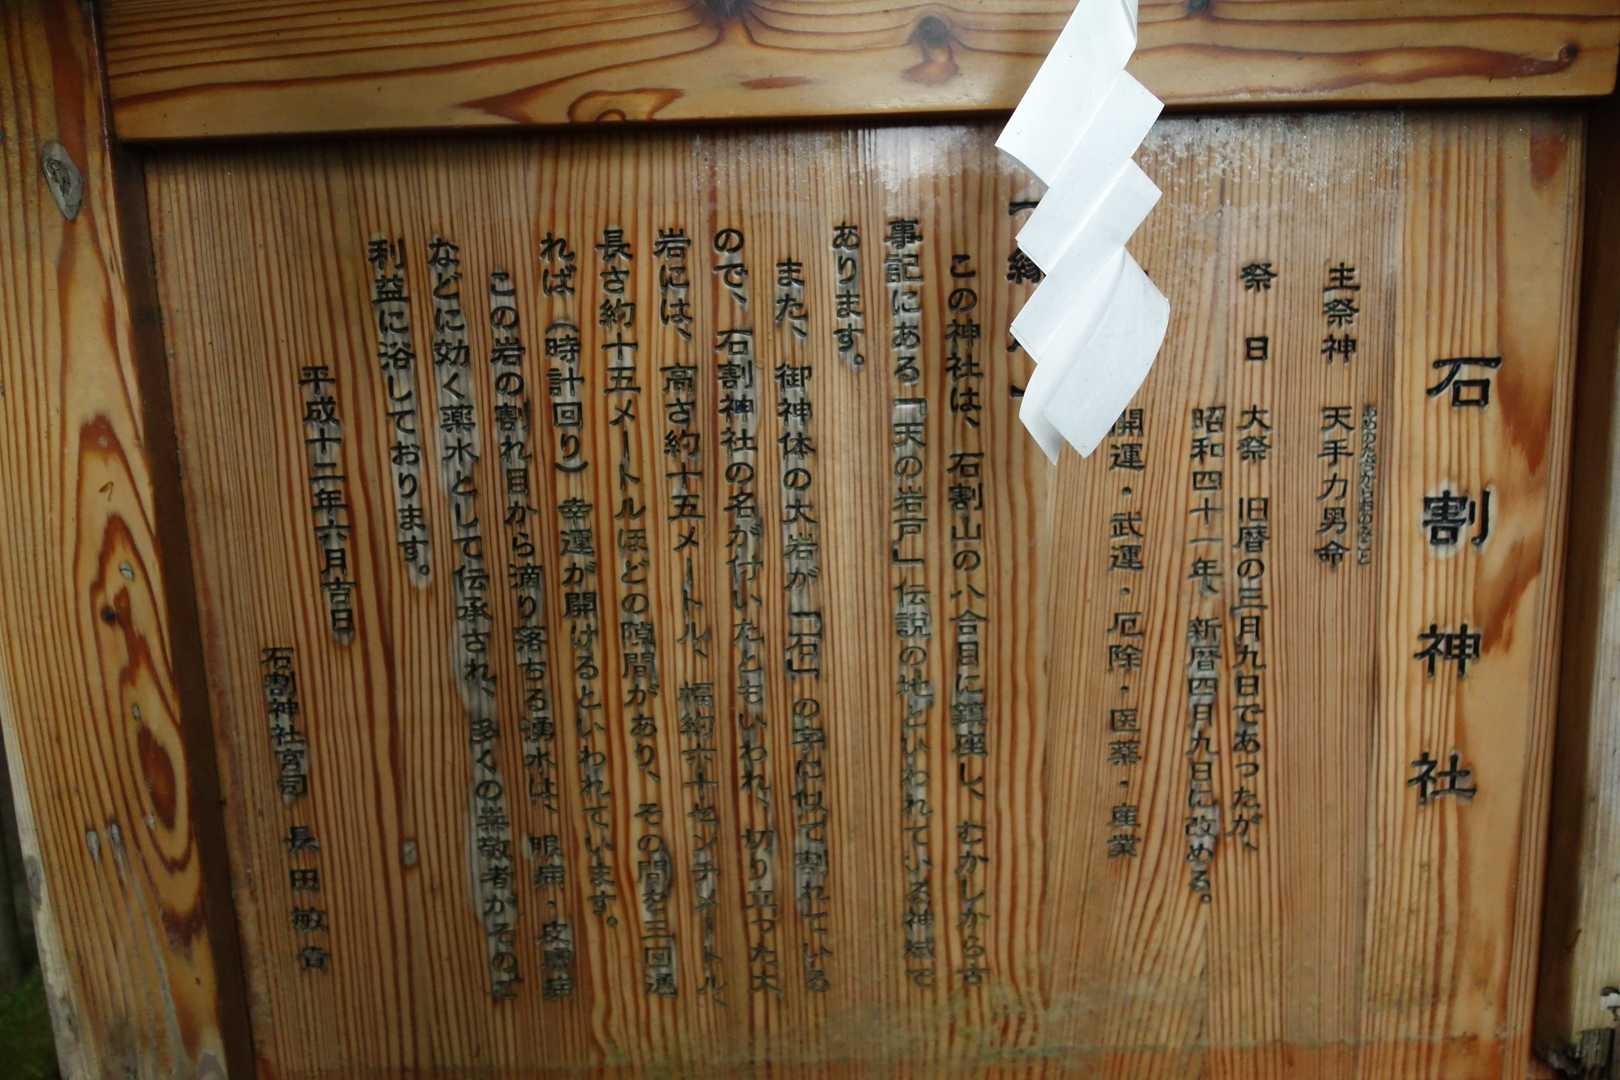 石割神社
主祭神 天手力男命
あめのたぢからおのみこと
祭 日 大祭 旧暦の三月九日であったが、
昭和四十一年、新暦四月九日に改める。
開運・武運・厄除・医薬・産業
この神社は、石割山の八合目に鎮座し、むかしから古
事記にある「天の岩戸」伝説の地といわれている神域で
あります。
また、御神体の大岩が「石」の字に似て割れている
ので、石割神社の名が付いたともいわれ、切り立った大
岩には、高さ約十五メートル、幅約六十センチメートル、
長さ約十五メートルほどの隙間があり、その間を三回通
れば(時計回り)幸運が開けるといわれています。
この岩の割れ目から滴り落ちる湧水は、眼病・皮膚病
などに効く薬水として伝承され、多くの崇敬者がその
利益に浴しております。
平成十二年六月吉日
石割神社宮司 長田敏